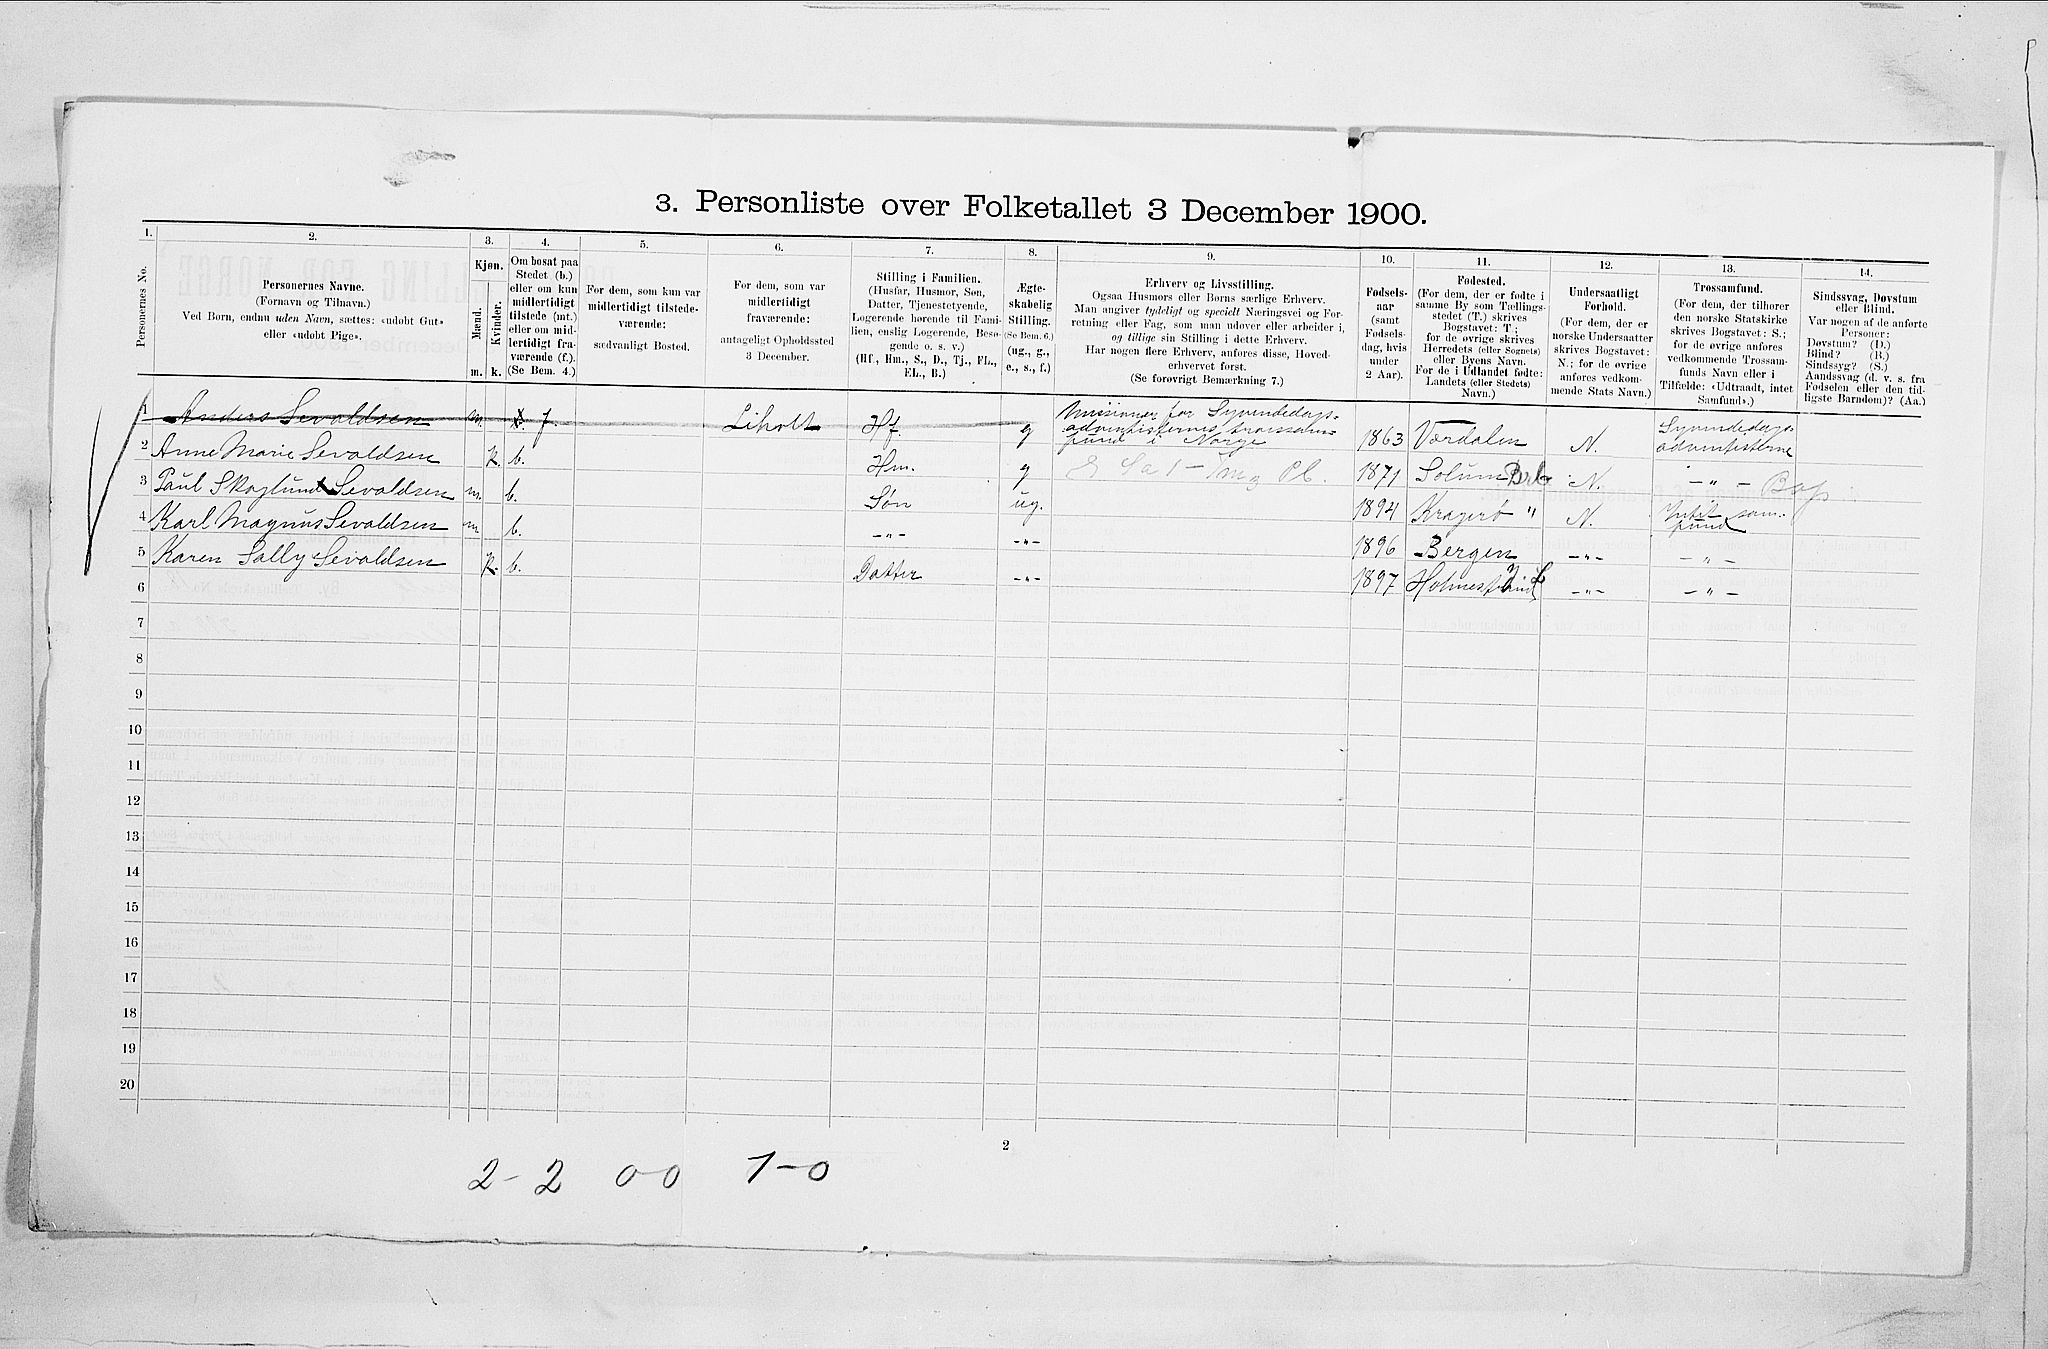 3. Personliste over Folketallet 3 December 1900.
1. 2. 3. 4. 5. 6. 7. 8. 9. 10. 11. 12. 13. 14.
Personernes No.
Personernes Navne.
(Fornavn og Tilnavn.)
Ved Børn, endnu uden Navn, sættes: «udøbt Gut»
eller «udøbt Pige».
Kjøn.
Mænd.
Kvinder.
m. k.
Om bosat paa
Stedet (b.)
eller om kun
midlertidigt
tilstede (mt.)
eller om mid-
lertidigt fra-
værende (f.).
(Se Bem. 4.)
For dem, som kun var
midlertidigt tilstede-
værende:
sædvanligt Bosted.
For dem, som var
midlertidigt
fraværende:
antageligt Opholdssted
3 December.
Stilling i Familien.
(Husfar, Husmor, Søn,
Datter, Tjenestetyende,
Logerende hørende til Fami-
lien, enslig Logerende, Besø-
gende o. s. v.)
(Hf., Hm., S., D., Tj., FL.,
EL., B.)
Ægte-
skabelig
Stilling.
(Se Bem. 6.)
(ug., g.,
e., s., f.)
Erhverv og Livsstilling.
Ogsaa Husmors eller Børns særlige Erhverv.
Man angiver tydeligt og specielt Næringsvei og For-
retning eller Fag, som man udøver eller arbeider i,
og tillige sin Stilling i dette Erhverv.
Har nogen flere Erhverv, anføres disse, Hoved-
erhvervet først.
(Se forøvrigt Bemærkning 7.)
Fødsels-
aar
(samt
Fødsels-
dag, hvis
under
2 Aar).
Fødested.
(For dem, der er fødte i
samme By som Tællings-
stedet (T.) skrives
Bogstavet: T.;
for de øvrige skrives
Herredets (eller Sognets)
eller Byens Navn.
For de i Udlandet fødte:
Landets (eller Stedets)
Navn.)
Undersaatligt
Forhold.
(For dem, der er
norske Undersaatter
skrives Bogstavet:
N.; for de øvrige
anføres vedkom-
mende Stats Navn.)
Trossamfund.
(For dem, der tilhører
den norske Statskirke
skrives Bogstavet: S.;
for de øvrige anføres
vedkommende Trossam-
funds Navn eller i
Tilfælde: «Udtraadt, intet
Samfund».)
Sindssvag, Døvstum
eller Blind.
Var nogen af de anførte
Personer:
Døvstum? (D.)
Blind? (B.)
Sindssyg? (S.)
Aandssvag (d. v. s. fra
Fødselen eller den tid-
ligste Barndom)? (Aa.)
1 Anders Sevaldsen m. f. Liholt Hf. g Missionær for Syvendedags-
adventisternes trossam-
fund i Norge 1863 Værdalen N. Syvendedags-
adventisterne
2 Anne Marie Sevaldsen k. b. Hm. g 1871 Solum N. — " — Bap
3 Paul Skoglund Sevaldsen m. b. Søn ug. 1894 Kragerø " N. Intit sam.
fund
4 Karl Magnus Sevaldsen m. b. — " — — " — 1896 Bergen — " — — " —
5 Karen Sally Sevaldsen k. b. Datter — " — 1897 Holmestrand — " — — " —
6
7
8
9
10
11
12
13
14
15
16
17
18
19
20
2
2 - 2 0-0 1-0